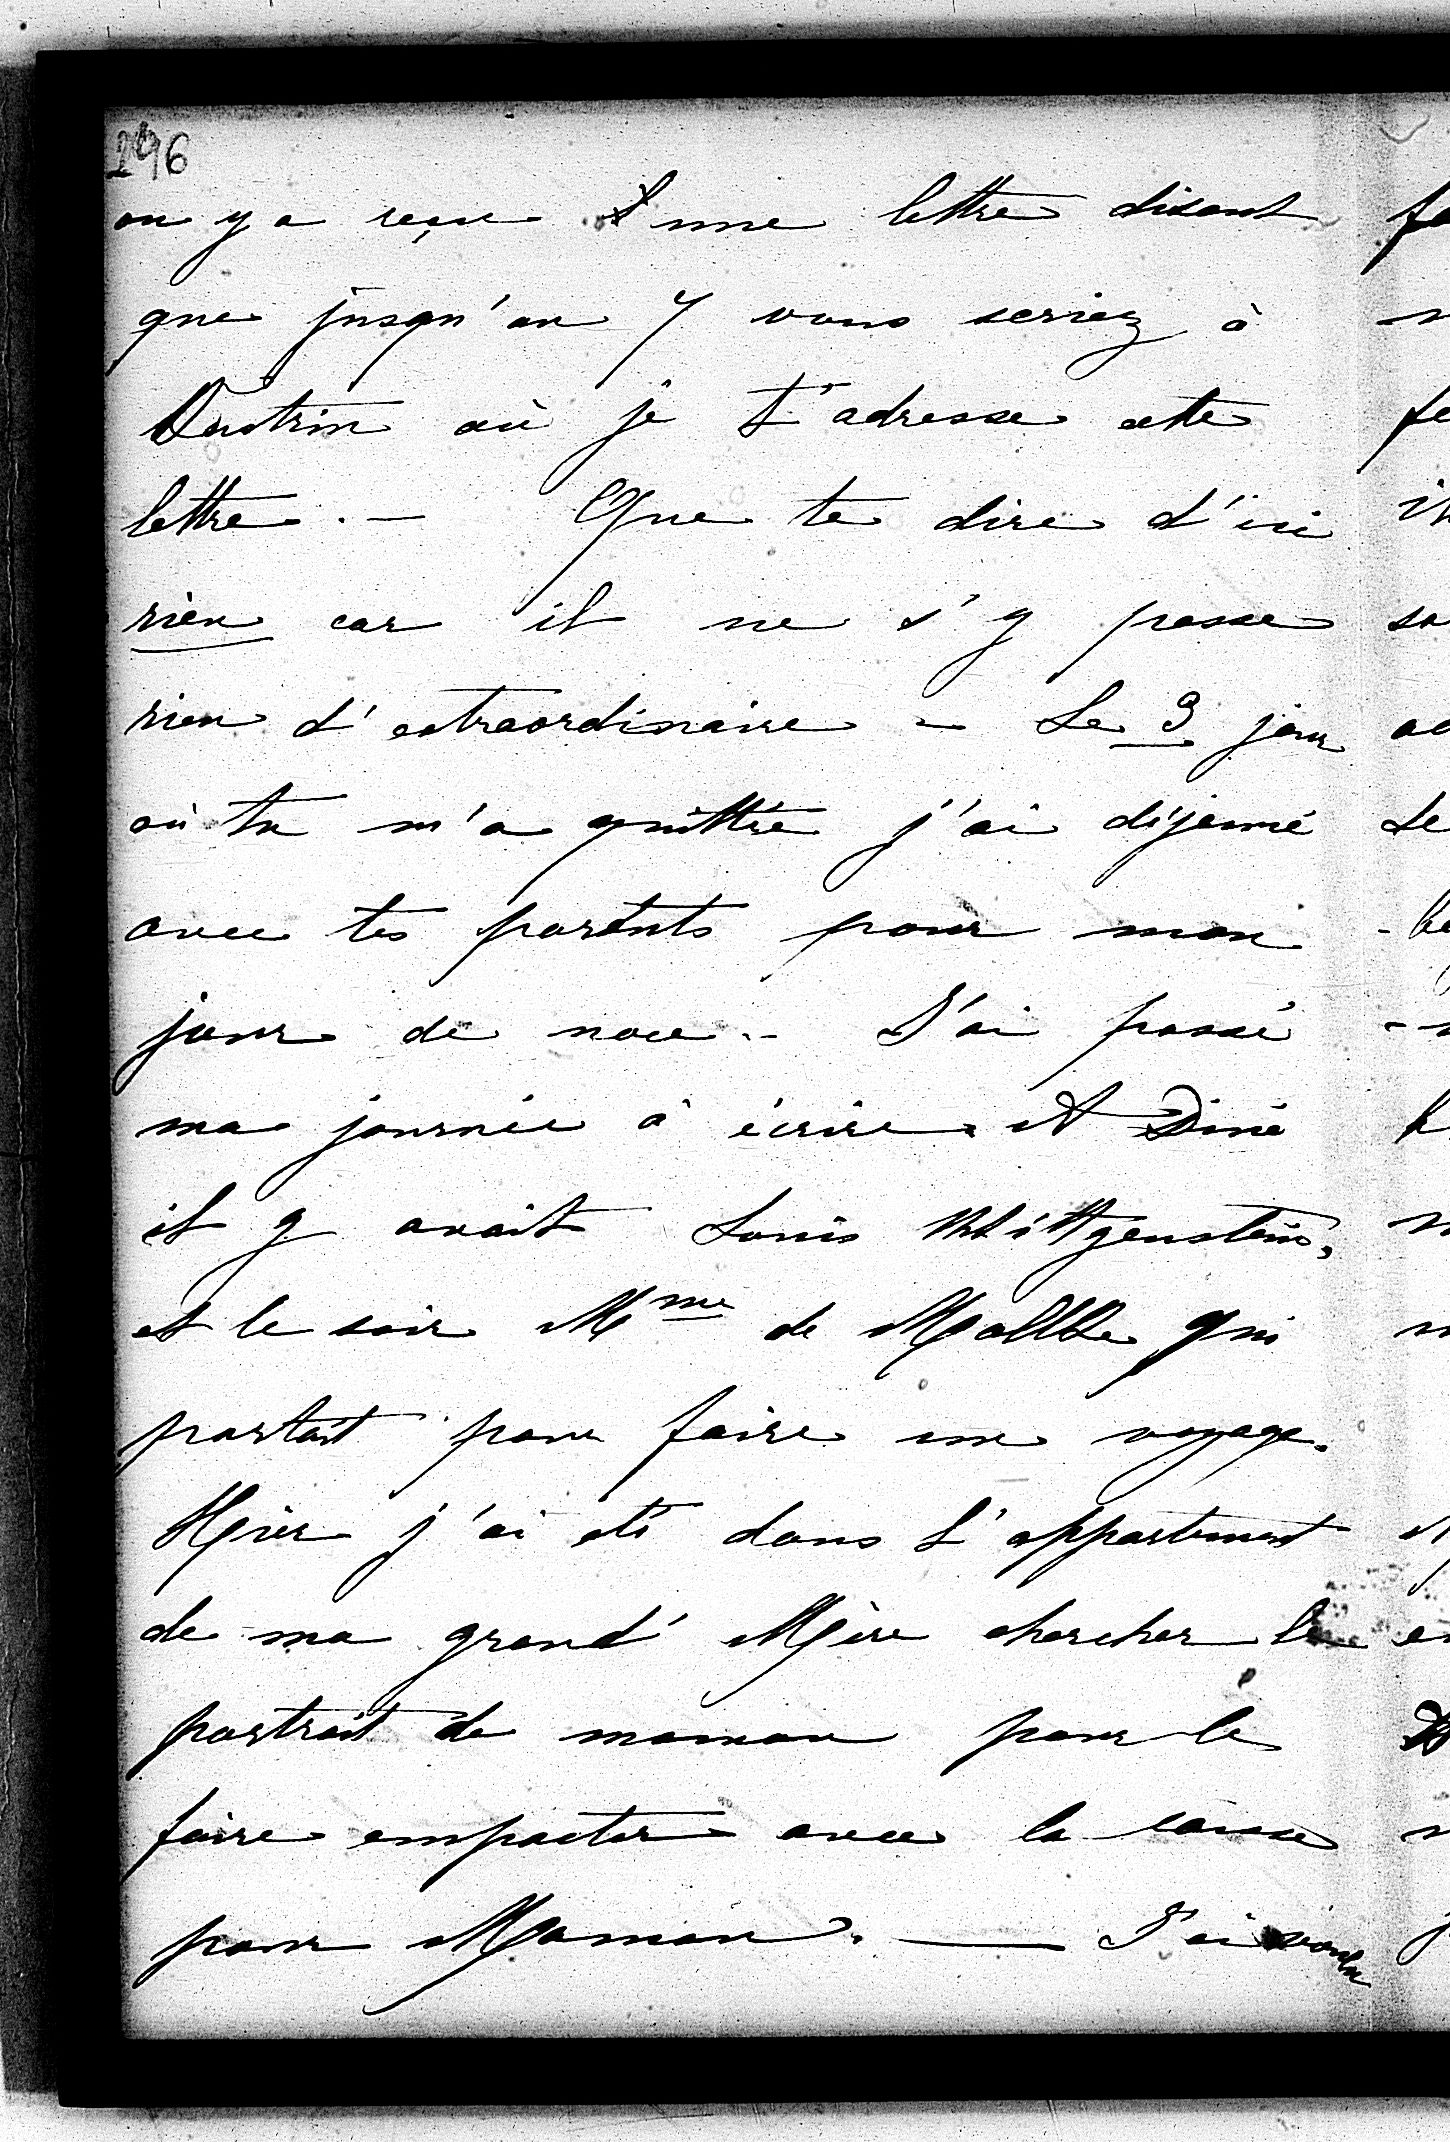 196
on y a reçu une lettre disant
que jusqu'au 7 vous seriez à
où je t'adresse cette
lettre. — Que te dire d'ici
rien car il ne s'y passe
rien d'extraordinaire — Le 3 jour
où tu m'a quittée j'ai déjeuné
avec tes parents pour mon
jour de noce. — J'ai passé
ma journée à écrire. A Diné
il y avait Louis Wittgenstein,
et le soir Mme de qui
partait pour faire un voyage.
Hier j'ai été dans l'appartement
de ma grand' Mère chercher le
portrait de maman pour le
faire empacter avec la caisse
pour Maman. — J'ai voulu